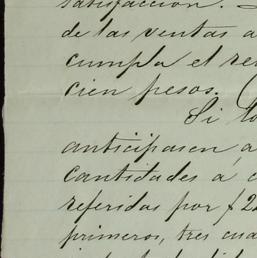 satisfaccion.
de las ventas a
cumpla el
cien pesos. (
Si
anticipasen a
cantidades á
referidas por $
primeros, tres